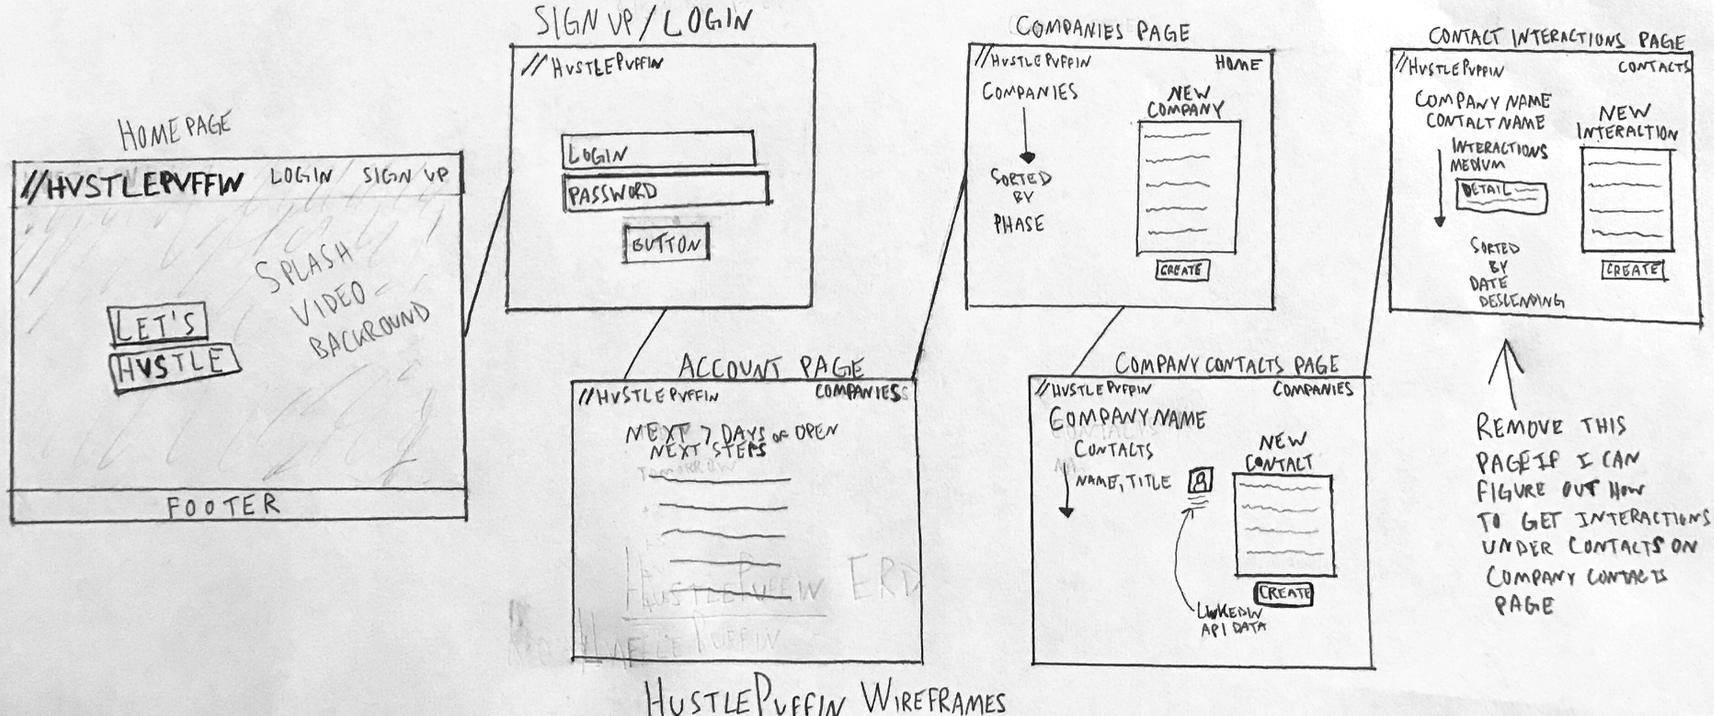 HOMEPAGE
//HUSTLEPUFFIN LOGIN SIGN UP
SPLASH
VIDEO
BACKROUND
LET'S
HUSTLE
FOOTER
SIGN UP / LOGIN
//HUSTLEPUFFIN
LOGIN
PASSWORD
BUTTON
ACCOUNT PAGE
//HUSTLEPUFFIN COMPANIES
NEXT 7 DAYS OF OPEN
NEXT STEPS
TOMORROW
HUSTLEPUFFIN ERD
COMPANIES PAGE
//HUSTLEPUFFIN HOME
COMPANIES
SORTED
BY
PHASE
NEW
COMPANY
CREATE
COMPANY CONTACTS PAGE
//HUSTLEPUFFIN COMPANIES
COMPANY NAME
CONTACTS
NAME, TITLE
NEW
CONTACT
CREATE
LINKEDIN
API DATA
CONTACT INTERACTIONS PAGE
//HUSTLEPUFFIN CONTACTS
COMPANY NAME
CONTACT NAME
INTERACTIONS
MEDIUM
DETAIL
SORTED
BY
DATE
DESCENDING
NEW
INTERACTION
CREATE
REMOVE THIS
PAGE IF I CAN
FIGURE OUT HOW
TO GET INTERACTIONS
UNDER CONTACTS ON
COMPANY CONTACTS
PAGE
HUSTLEPUFFIN WIREFRAMES